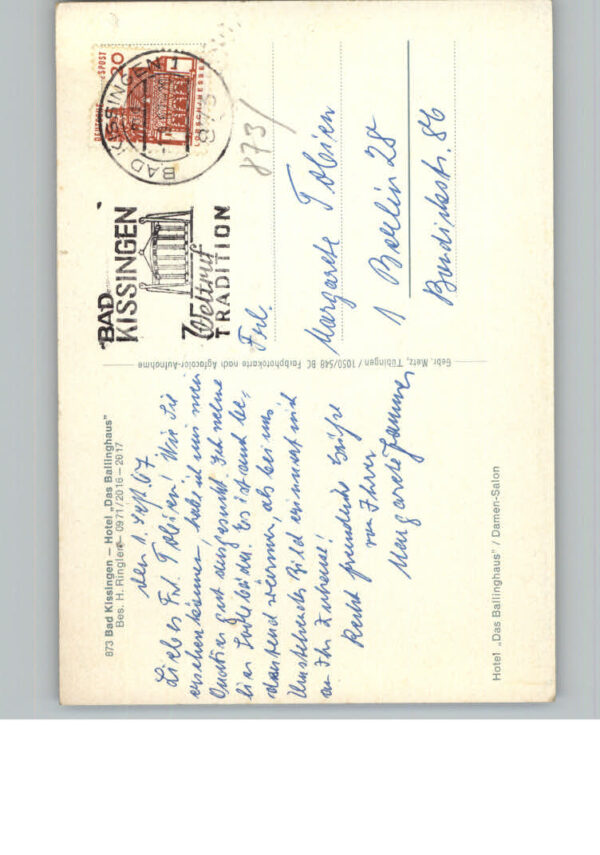 873 Bad Kissingen – Hotel „Das Ballinghaus"
Bes. H. Ringler – 0971/2016 – 2017
den 1. Sept. 67
Liebes Frl. Tobien! Wie Sie
ersehen können, habe ich mir mein
Quartier gut ausgesucht. Ich nehme
hier Bäder. Es ist auch be-
deutend wärmer, als bei uns
Umstehendes Bild erinnert mich
an Ihr Zuhause!
Recht freundliche Grüße
von Ihrer
Margarete
Hotel „Das Ballinghaus" / Damen-Salon
Gebr. Metz, Tübingen / 1050/548 BC Farbphotokarte nach Agfacolor-Aufnahme
BAD
KISSINGEN
Weltruf
TRADITION
DEUTSCHE BUNDESPOST
20
LORSCH/HESSEN
BAD KISSINGEN 1
873
873/
Frl.
Margarete Tobien
1 Berlin 28
Bundickstr. 86